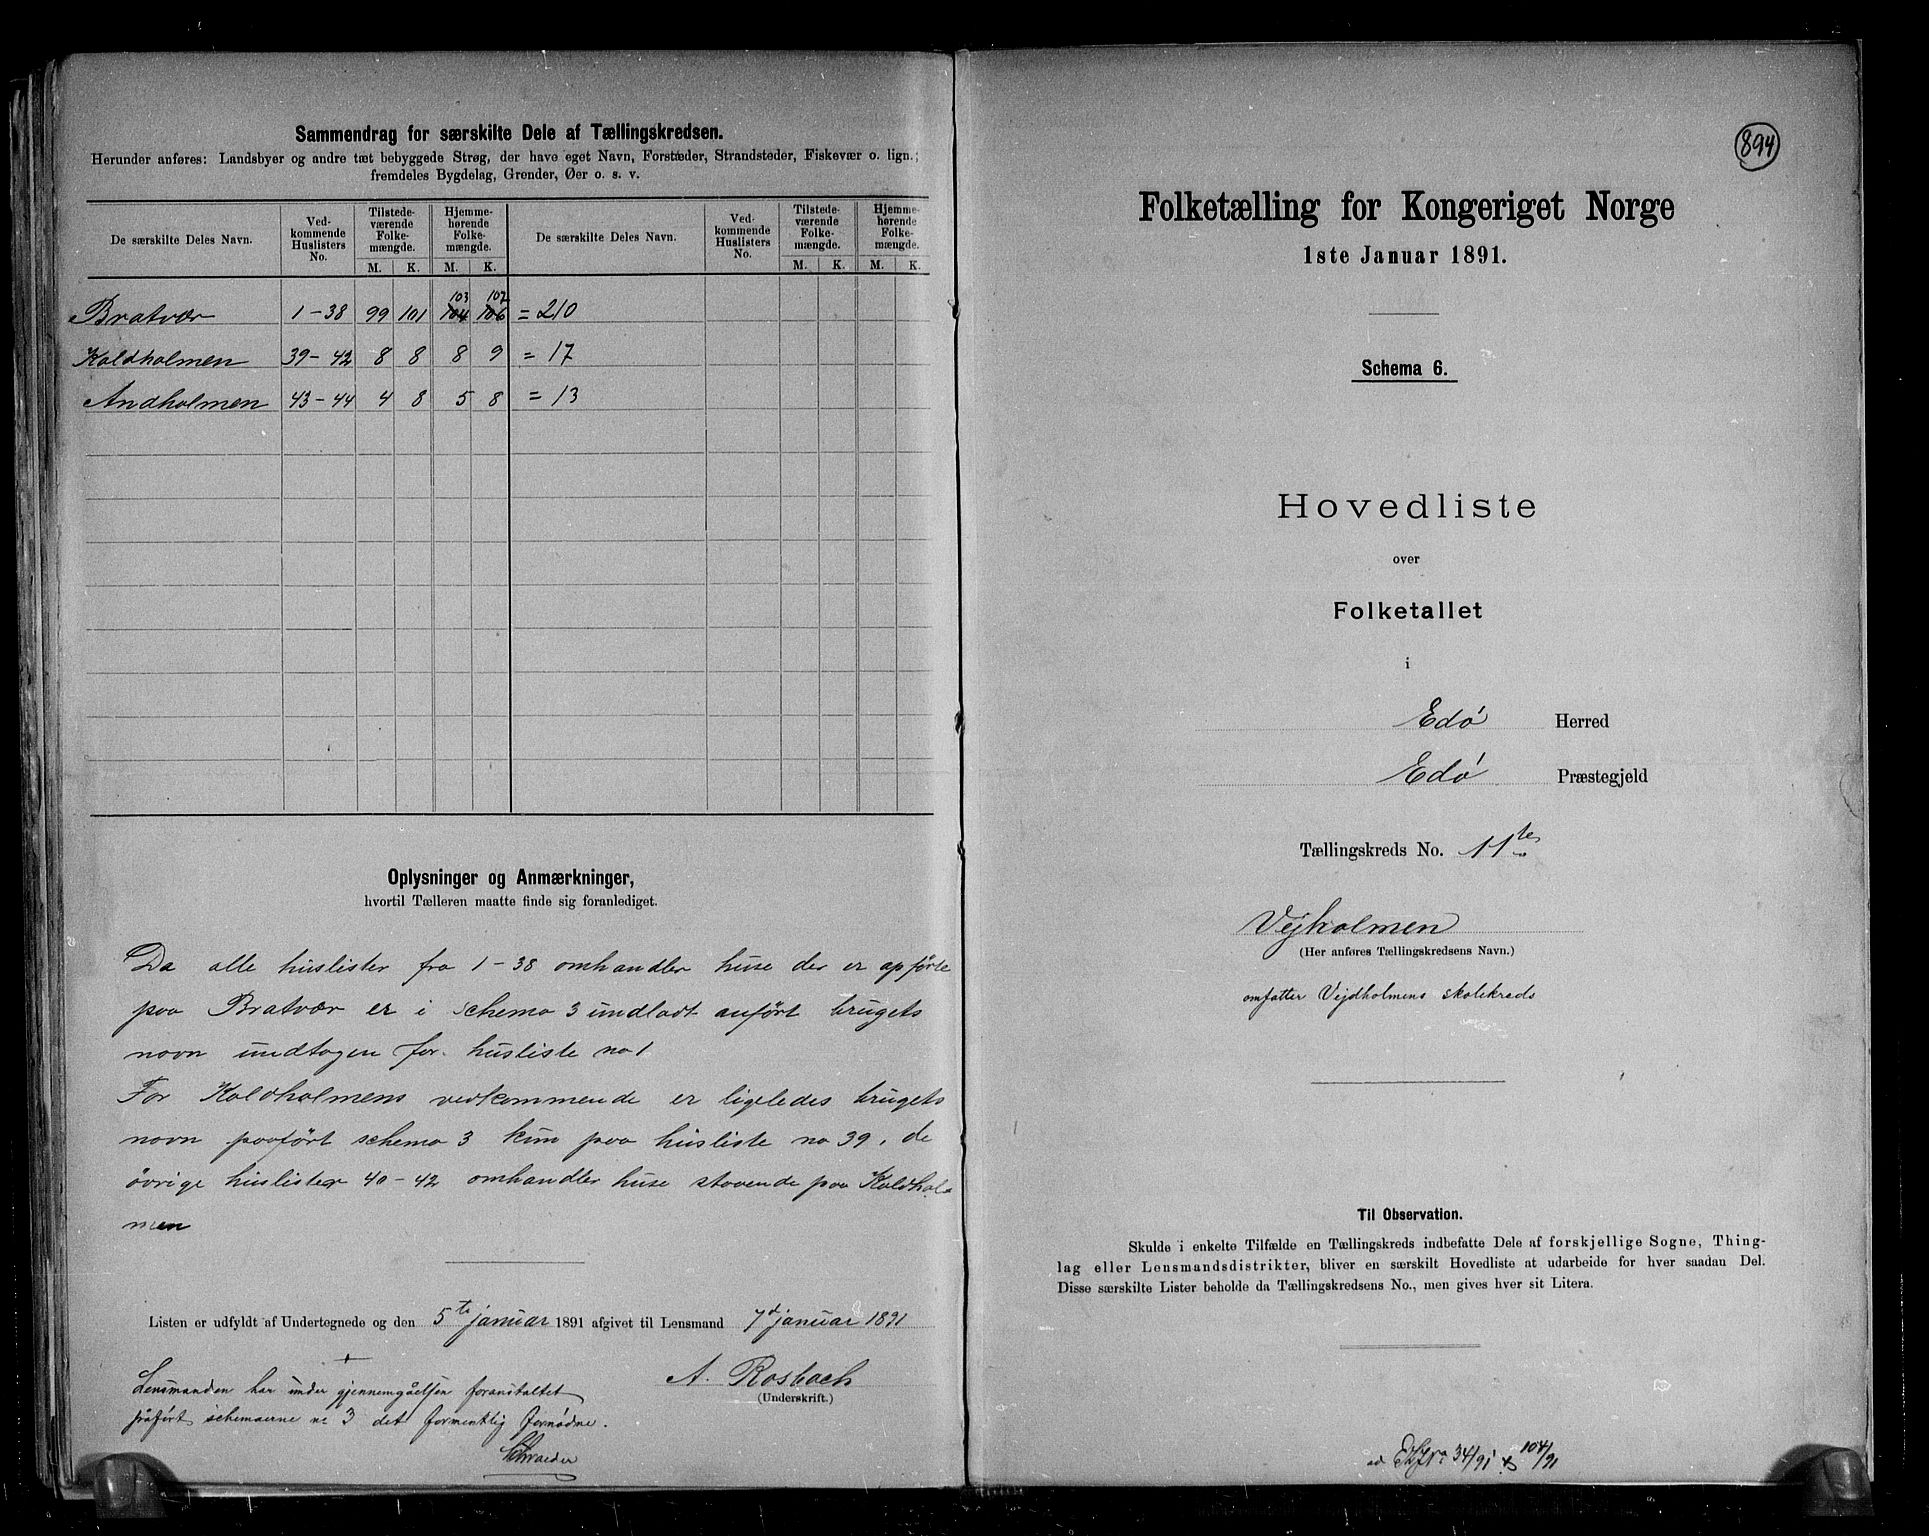 Sammendrag for særskilte Dele af Tællingskredsen.
Herunder anføres: Landsbyer og andre tæt bebyggede Strøg, der have eget Navn, Forstæder, Strandsteder, Fiskevær o. lign.;
fremdeles Bygdelag, Grender, Øer o. s. v.
De særskilte Deles Navn. Vedkommende Huslisters No. Tilstedeværende Folkemængde. Hjemmehørende Folkemængde. De særskilte Deles Navn. Vedkommende Huslisters No. Tilstedeværende Folkemængde. Hjemmehørende Folkemængde.
M. K. M. K. M. K. M. K.
103 102
Bratvær 1-38 99 101 104 106 = 210
Koldholmen 39-42 8 8 8 9 = 17
Andholmen 43-44 4 8 5 8 = 13
Oplysninger og Anmærkninger,
hvortil Tælleren maatte finde sig foranlediget.
Da alle huslister fra 1-38 omhandler huse der er opførte
paa Bratvær er i schema 3 undladt anført brugets
navn undtagen for husliste no 1
For Koldholmens vedkommende er ligeledes brugets
navn paaført schema 3 kun paa husliste no 39, de
övrige huslister 40-42 omhandler huse staaende paa Koldhol
men
Listen er udfyldt af Undertegnede og den 5te januar 1891 afgivet til Lensmand 7d januar 1891
A. Rosbach
(Underskrift.)
Lensmanden har under gjennemgåelsen foranstaltet
påført schemaerne no 3 det formentlig fornødne.
Schrøder
894
Folketælling for Kongeriget Norge
1ste Januar 1891.
Schema 6.
Hovedliste
over
Folketallet
i
Edø Herred
Edø Præstegjeld
Tællingskreds No. 11te
Vejholmen
(Her anføres Tællingskredsens Navn.)
omfatter Vejdholmens skolekreds
Til Observation.
Skulde i enkelte Tilfælde en Tællingskreds indbefatte Dele af forskjellige Sogne, Thing-
lag eller Lensmandsdistrikter, bliver en særskilt Hovedliste at udarbeide for hver saadan Del.
Disse særskilte Lister beholde da Tællingskredsens No., men gives hver sit Litera.
ad 34/91 104/91